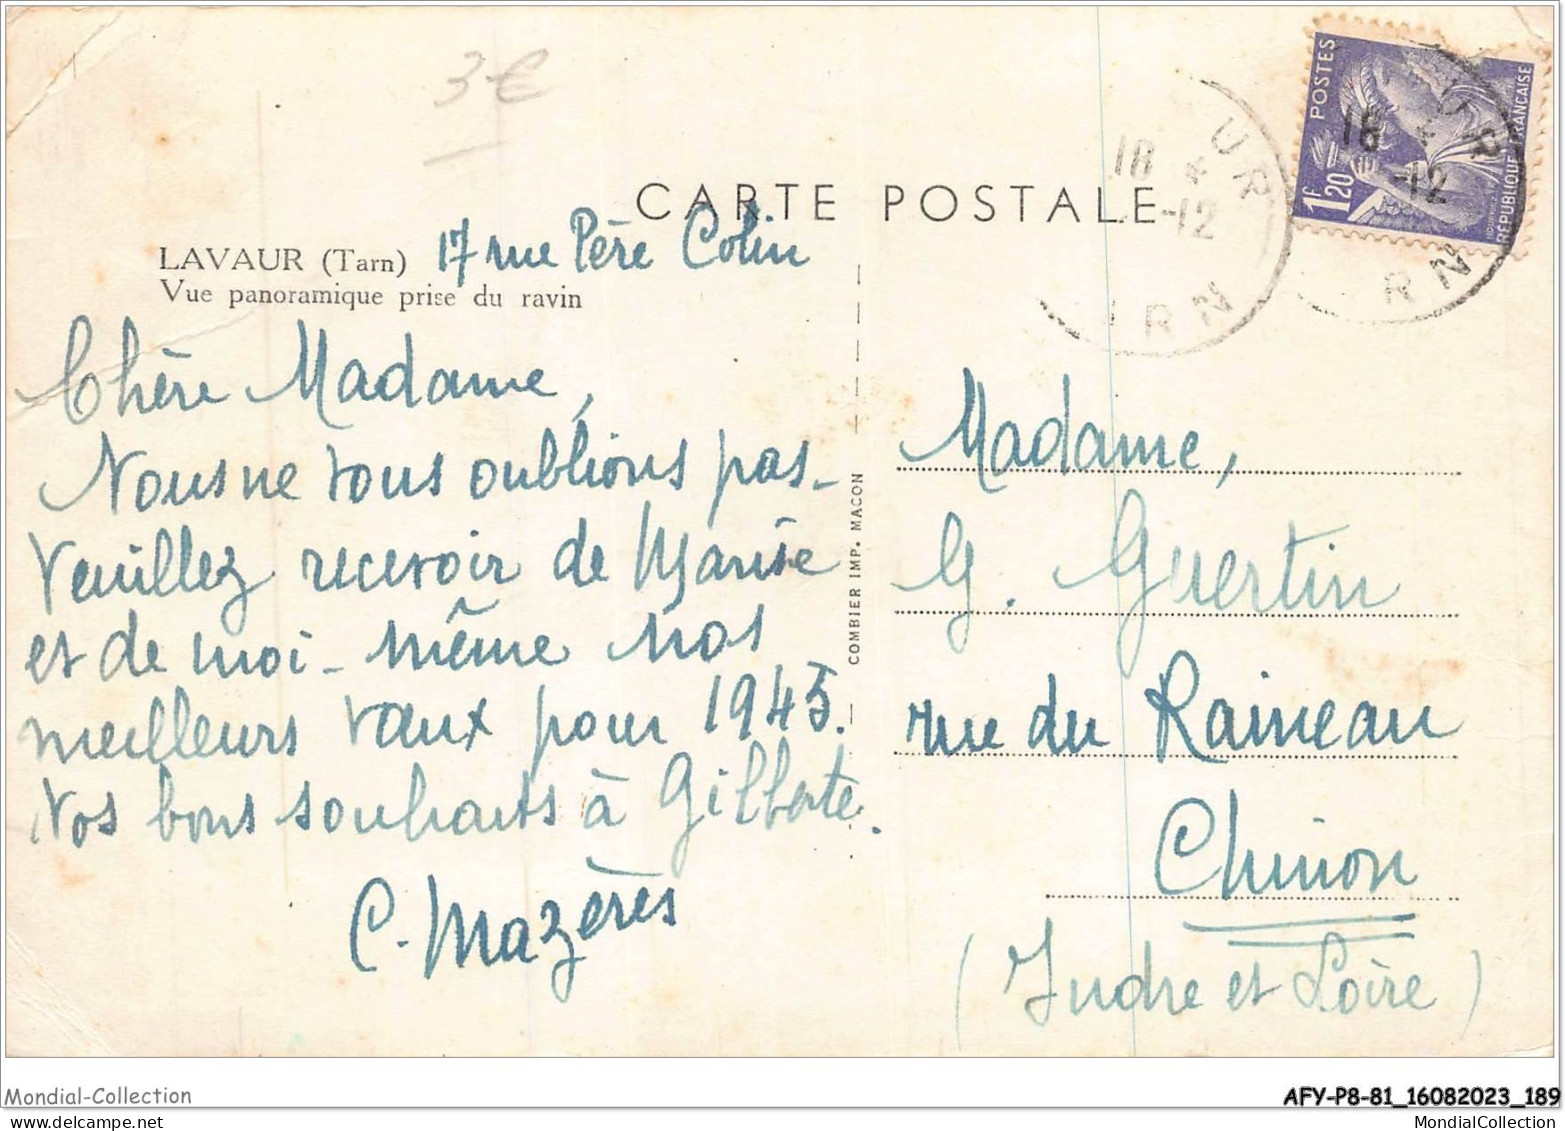 3€
CARTE POSTALE
LAVAUR (Tarn) 17 rue Père Colin
Vue panoramique prise du ravin
Chère Madame,
Nous ne vous oublions pas -
Veuillez recevoir de Marise
et de moi-même nos
meilleurs vœux pour 1945.
Nos bons souhaits à Gilberte.
C. Mazères
COMBIER IMP. MACON
UR
18
-12
RN
POSTES
1f,20
RÉPUBLIQUE FRANÇAISE
UR
18
-12
RN
Madame,
G. Guertin
rue du Raineau
Chinon
(Indre et Loire)
Mondial-Collection
AFY-P8-81_16082023_189
MondialCollection